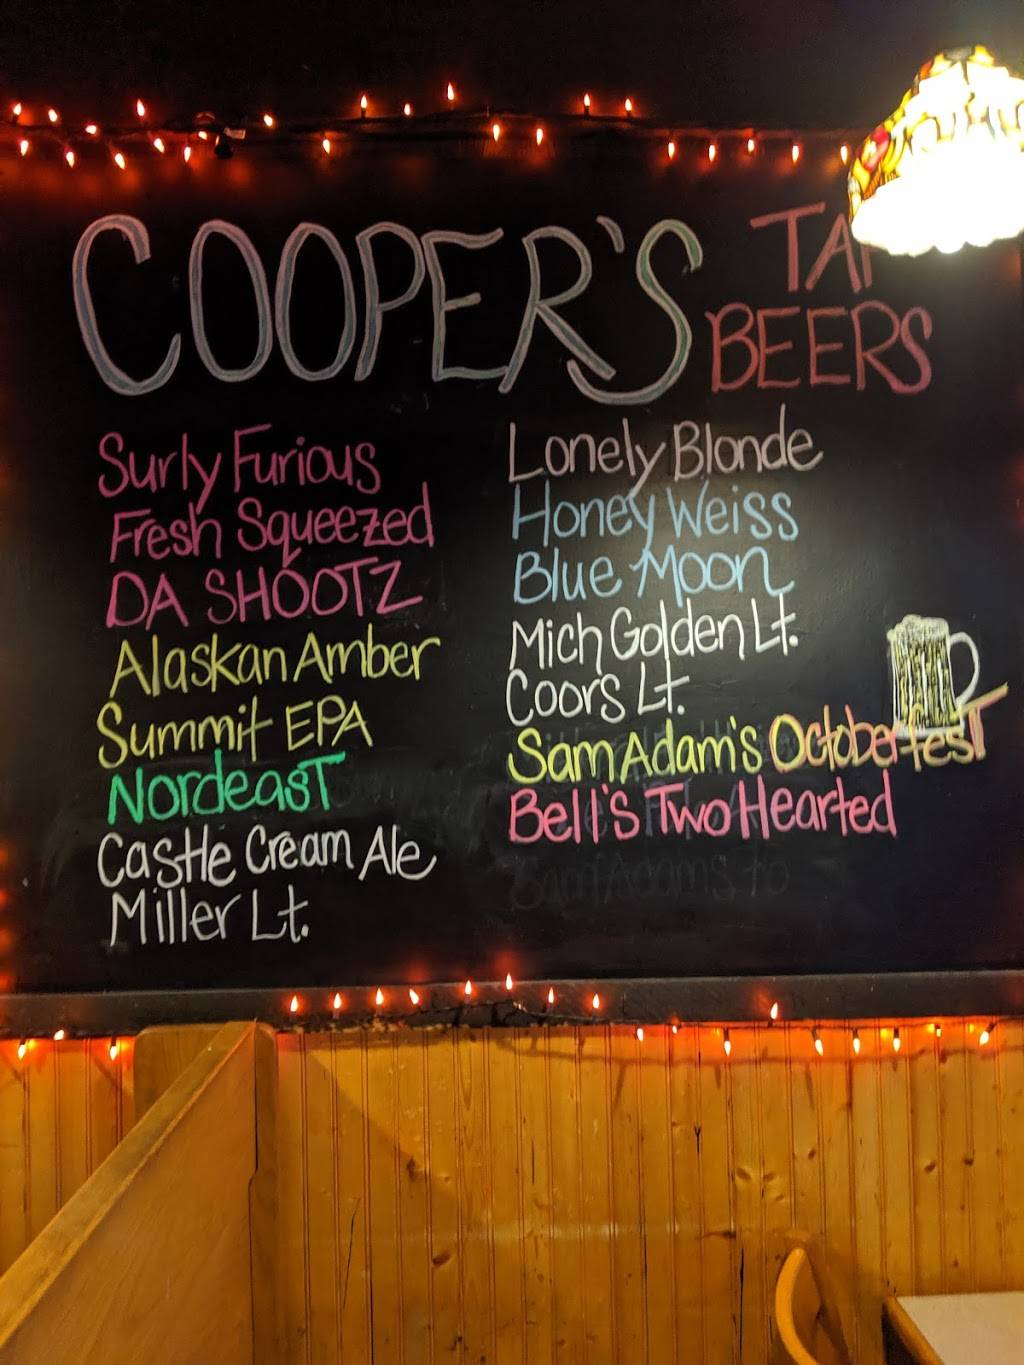 COOPER'S TAP
BEERS
Surly Furious
Fresh Squeezed
DA SHOOTZ
Alaskan Amber
Summit EPA
Nordeast
Castle Cream Ale
Miller Lt.
Lonely Blonde
Honey Weiss
Blue Moon
Mich Golden Lt.
Coors Lt.
Sam Adam's Octoberfest
Bell's Two Hearted
Sam Adams to